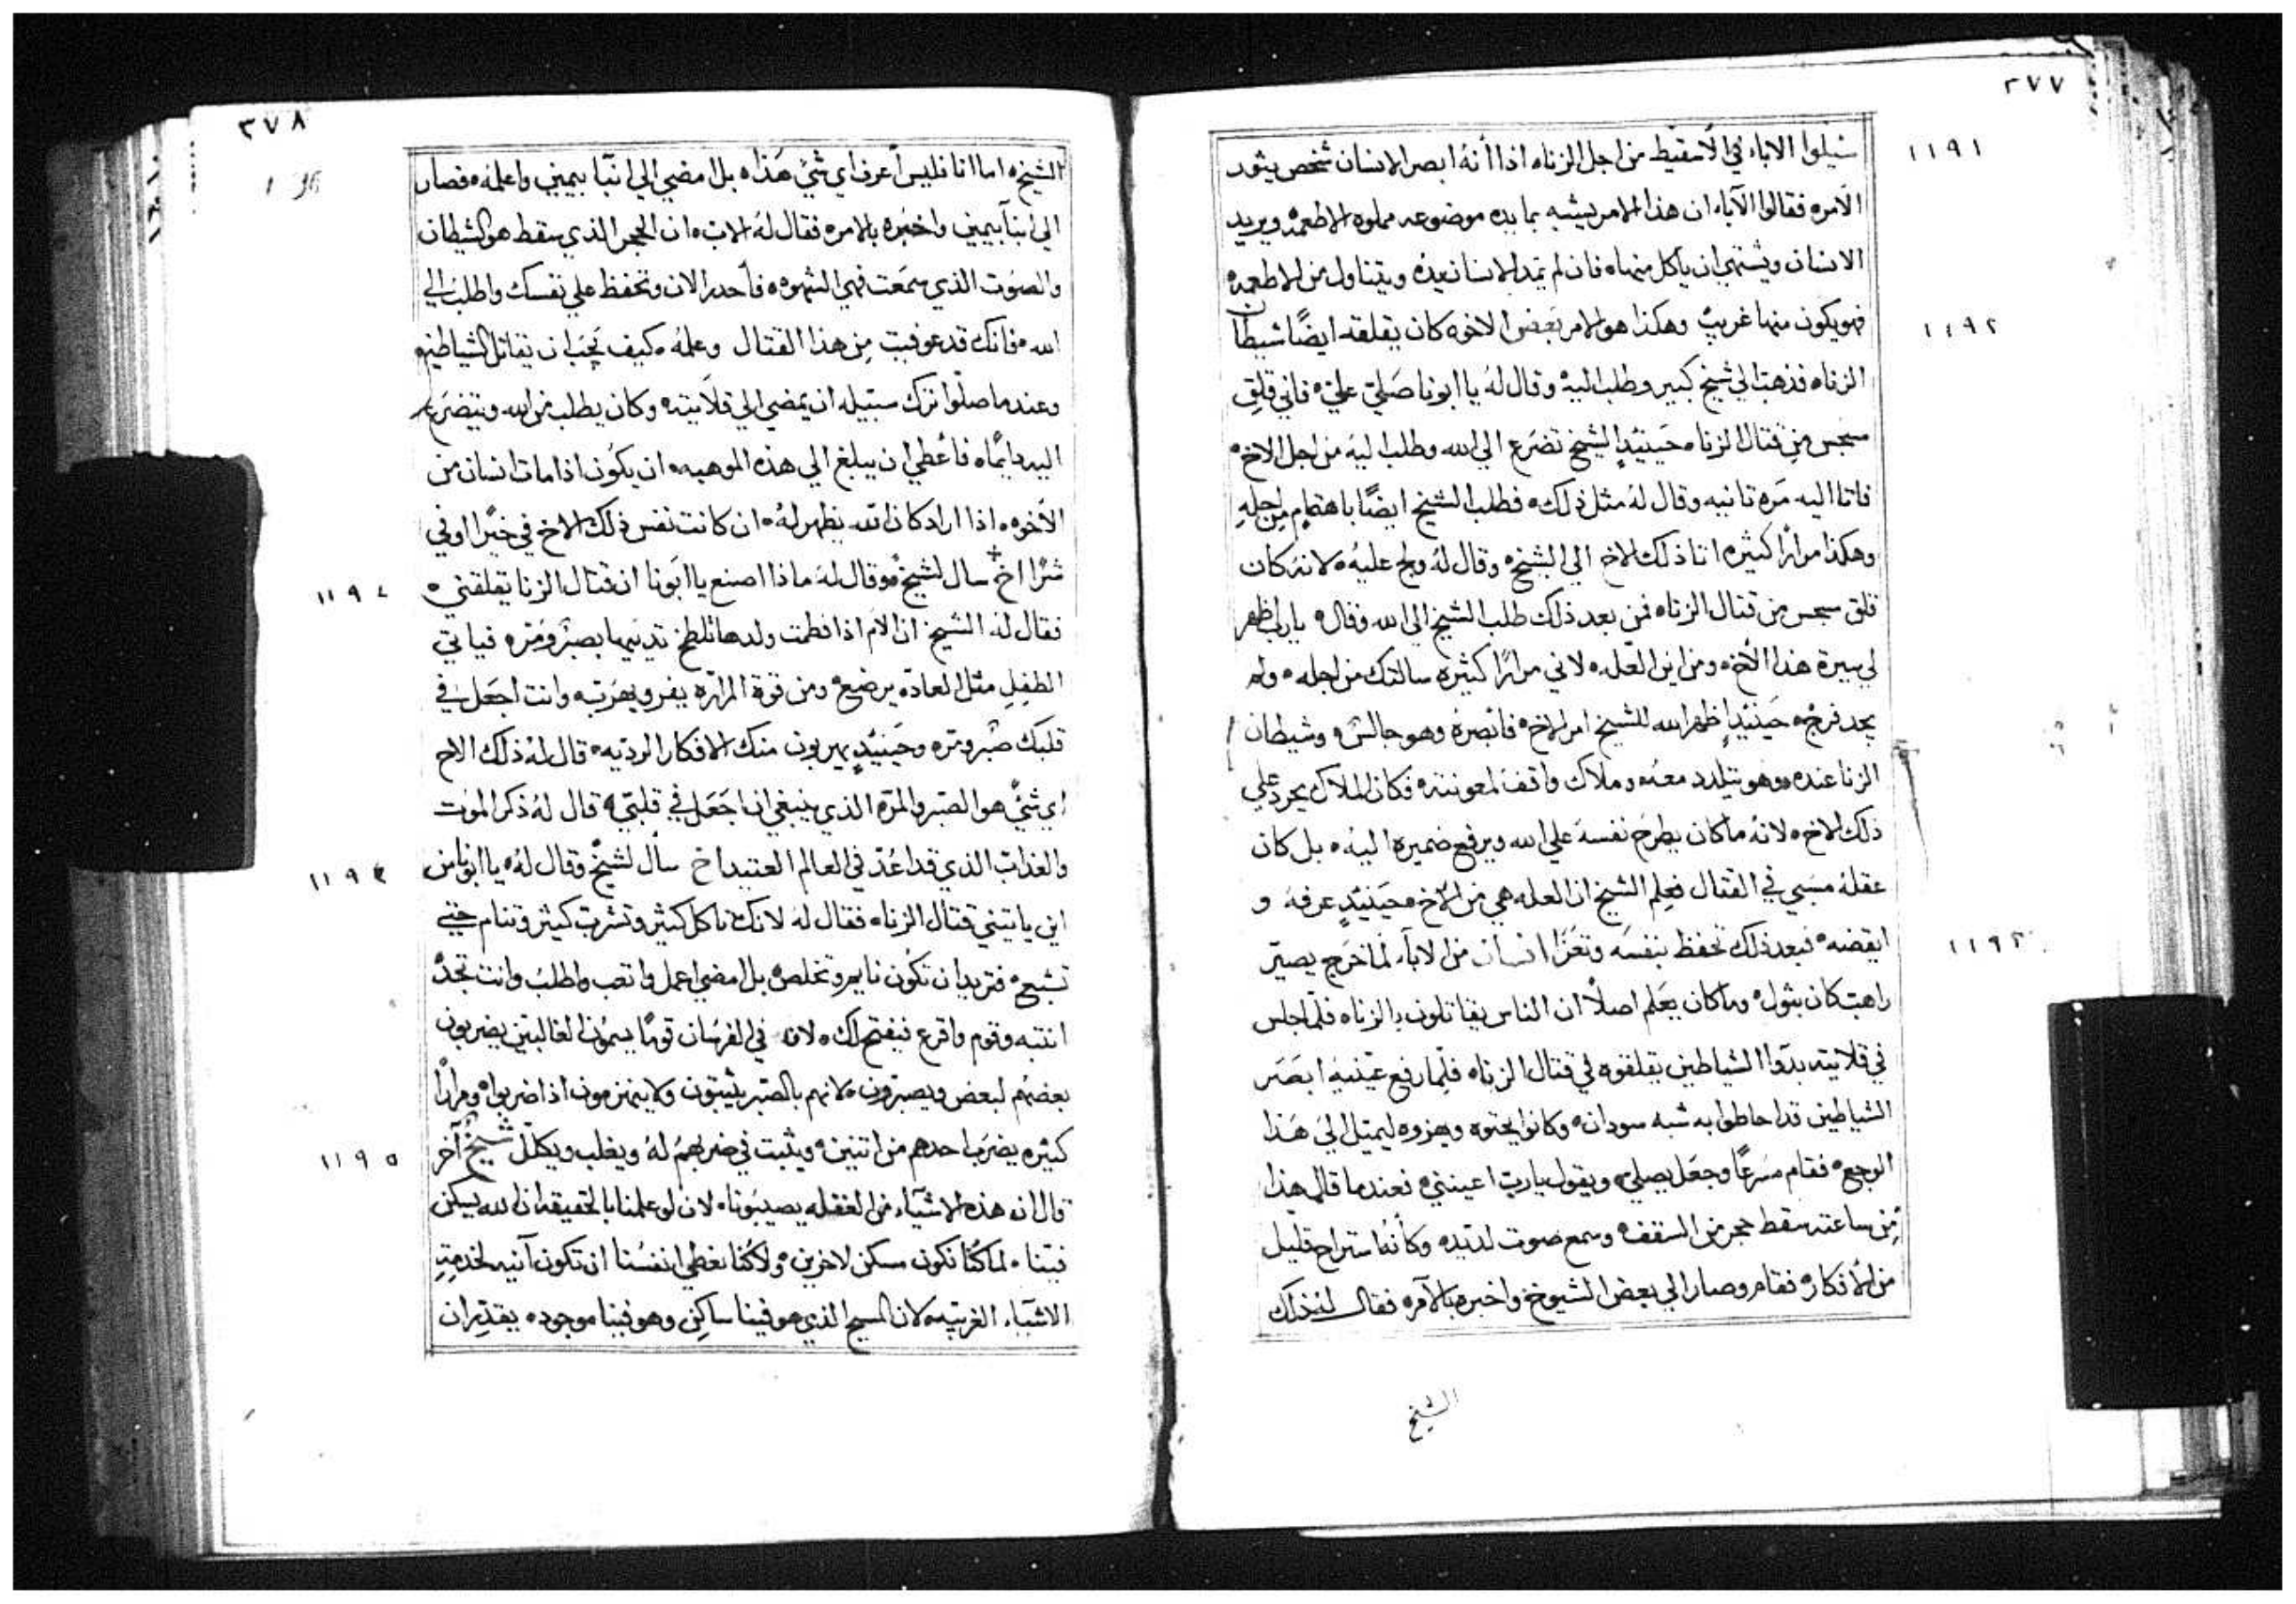 ٣٧٧
١١٩١
سُيلوا الاباء في الأسقيط من اجل الزناه اذا أنهُ ابصر الانسان شخص يثور
الامره فقالوا الآباء ان هذا الامر يشبه بمايده موضوعه مملوه الاطعمه ويريد
الانسان ويشتهي ان ياكل منها ه فان لم يمد الانسان يده ويتناول من الاطعمه
١١٩٢
فهو يكون منها غريب وهكذا هو الامر بعض الاخوه كان يقلقه ايضًا شيطان
الزناه فذهب الي شيخ كبير وطلب اليه وقال لهُ يا ابونا صَلي عليّ ه فاني قلِق
سجس من قتال الزناه حَينيدٍ الشيخ تضرع الي الله وطلب اليه من اجل الاخ ه
فاتا اليه مَره تانيه وقال لهُ مثل ذلك ه فطلب الشيخ ايضًا باهتمام من اجلهِ
وهكذا مرارًا كثيره اتا ذلك الاخ الي الشيخ ه وقال لهُ ولج عليهُ ه لانهُ كان
قلق سجس من قتال الزناه فمن بعد ذلك طلب الشيخ الي الله وقال ه يارب اظهر
لي سيرة هذا الأخ ه ومن اين العله ه لاني مرارًا كثيره سالتك من اجله ه ولم
يجد فرج ه حَينيدٍ اظهر الله للشيخ امر الاخ ه فأبصره وهو جالس ه وشيطان
الزنا عنده ه وهو يتلدد معهُ وملاك واقف لمعونته ه فكان الملاك يحرد علي
ذلك الاخ ه لانهُ ماكان يطرح نفسهَ علي الله ويرفع ضميره اليهُ ه بل كان
عقلهُ مسَبي في القتال فعلِم الشيخ ان العله هي من الأخ ه حَينيدٍ عرفهَ و
١١٩٣
ايقضه ه فبعد ذلك تحفظ بنفسَه وتعَزا انسان من الاباء لماخرَج يصير
راهب كان بتول ه وماكان يعَلم اصلاً ان الناس يقاتلون بالزناه فلما جلس
في قلايته بدَوا الشياطين يقلقوه في قتال الزناه فلما رفع عينيه ابصَر
الشياطين قد احاطوا به شبه سودان ه وكانوا يحتوه ويهزوه ليميل الي هَذا
الوجع ه فقام مسَرعًا وجعَل يصلي ه ويقول يارب اعينني ه فعند ما قال هذا
مِن ساعته سقط حجر من السقف ه وسمع صوت لديده وكأنهُ استراح قليل
من الأفكار ه فقام وصار الي بعض الشيوخ واخبره بالآمره فقال لهُ ذلك
الشيخ
٣٧٨
الشيخ ه اما انا فليس آعرف اي شيَ هَذا ه بل امضي الي انبا بيمين واعلمهُ ه فصار
الي انبآ بيمين واخبَره بالامره فقال لهُ الاب ه ان الحجر الذي سقط هو الشيطان
والصَوت الذي سمَعت فهي الشهوه ه فأحدر الان وتحفظ علي نفسك واطلب الي
الله ه فانك قد عوفيت مِن هذا القتال وعلمهُ ه كيف يجَب ان تقاتل الشياطين ه
وعند ما صلوا ترك سبيله ان يمضي الي قلاَيته ه وكان يطلب من الله ويتضرَع
اليه دايمًا ه فأعطي ان يبلغ الي هذه الموهبه ه ان يكُون اذا مات انسان من
الأخوه ه اذا اراد كان الله يظهر لهُ ه ان كانت نفس ذلك الاخ في خيرًا او في
١١٩٤
شرًا اخ سال لشيخ ه وقال لهَ ماذا اصنع يا ابَونا ان قتال الزنا يقلقني ه
فقال لهُ الشيخ ان الاَم اذا فطمت ولدها تلطخ تدييها بصبر ومَره فياتي
الطفِل مثل العاده يرضيع ه ومن قوة المراره يفر ويهرَب ه وانت اجعَل في
قلبَك صَبر ومَره وحَينيدٍ يهربون منك الافكار الرديه ه قال لهُ ذلك الاخ
اي شيّ هو الصَبر والمره الذي ينبغي ان اجَعَل في قلبَي ه قال لهُ ذكر الموت
١١٩٤
والعذاب الذي قد اعُدّ في العالم العتيد اخ سأل لشيخ وقال لهُ ه يا ابونا من
اين ياتيني قتال الزناه فقال لهُ لانك تاكل كثير وتشرب كثير وتنام حتي
تشبع ه فتريد ان تكُون نايم وتخلص ه بل امضي اعمل واتعب واطلبَ وانت تجدْ
انتبه وقوم واقرع فيفتح لك ه لانه في الفرسَان قومًا يسموَن الغالبين يضربون
بعضهُم لبعض ويصبَرون ه لانهم بالصَبر يثبتون ولا ينهزمون اذا ضربوا ه ومرارًا
١١٩٥
كثيره يضرَب احدهم من اتنين ه ويثبت في ضربهمُ لهُ ويغلب ويكلَل شيخٌ آخر
قال ان هذه الاشيآء من الغفله يصيبَونا ه لان لو علمنا بالحقيقه ان الله يسكن
فينا ه لما كُنا نكون مسكن لاخرين ه ولاكُنا نعطي انفسُنا ان تكون آنيه لخدمةِ
الاشيآء الغريبه ه لان المسيح الذي هو فينا ساكِن وهو فينا موجود ه يقدر ان